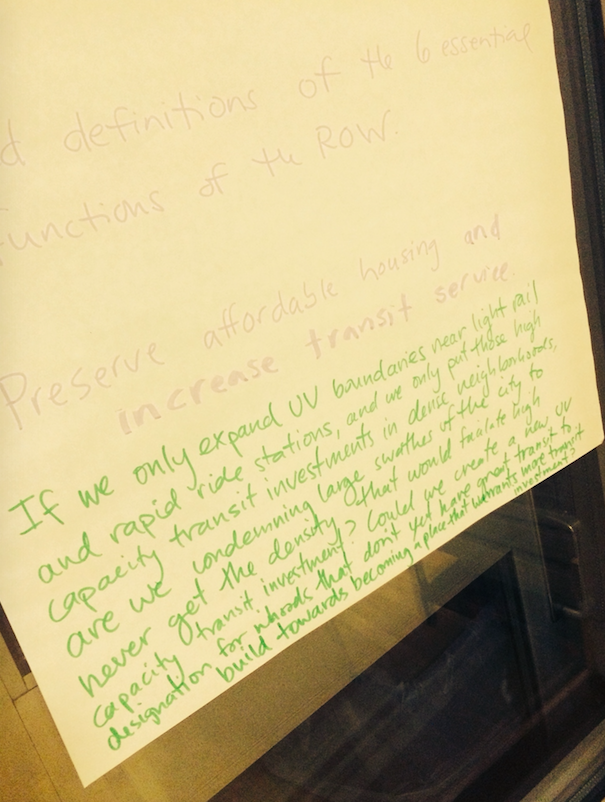 d definitions of the 6 essential
functions of the ROW.
Preserve affordable housing and
increase transit service.
If we only expand UV boundaries near light rail
and rapid ride stations, and we only put those high
capacity transit investments in dense neighborhoods,
are we condemning large swathes of the city to
never get the density that would facilate high
capacity transit investment? Could we create a new UV
designation for nhoods that don't yet have great transit to
build towards becoming a place that warrants more transit
investment?